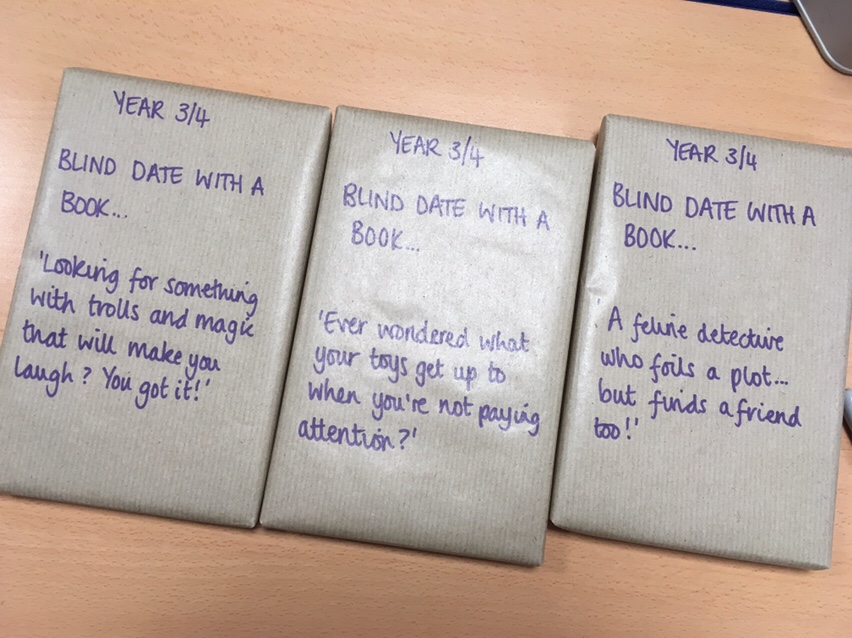 YEAR 3/4
BLIND DATE WITH A
BOOK...
'Looking for something
with trolls and magic
that will make you
laugh? You got it!'
YEAR 3/4
BLIND DATE WITH A
BOOK...
'Ever wondered what
your toys get up to
when you're not paying
attention?'
YEAR 3/4
BLIND DATE WITH A
BOOK...
'A feline detective
who foils a plot...
but finds a friend
too!'